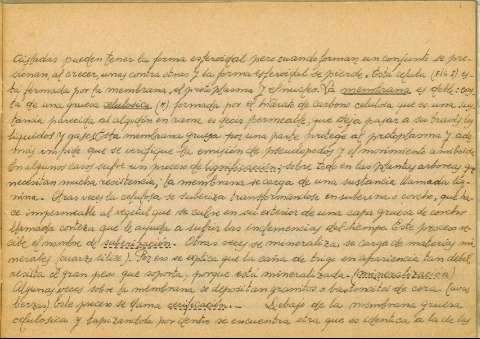 aisladas pueden tener la forma esferoidal pero cuando forman un conjunto se pre-
sionan, al crecer, unas contra otras y la forma esferoidal se pierde. Esta célula (Fig 2) es-
ta formada por la membrana, el protoplasma y el núcleo. La membrana es doble: cons-
ta de una gruesa celulósica (*) formada por el hidrato de carbono celulosa que es una sus-
tancia parecida al algodón en rama es decir permeable, que deja pasar a su través los
líquidos y gases. Esta membrana gruesa por una parte protege al protoplasma y ade-
mas impide que se verifique la emisión de pseudopodos y el movimiento ameboide
En algunos casos sufre un proceso de lignificación; sobre todo en las plantas arboreas q.
necesitan mucha resistencia, la membrana se carga de una sustancia llamada lig-
nina. Otras veces la celulosa se suberiza transformandose en suberina o corcho, que ha-
ce impermeable al vegetal que se cubre en su exterior de una capa gruesa de corcho
llamada corteza que le ayuda a sufrir las inclemencias del tiempo. Este proceso re-
cibe el nombre de suberización. Otras veces se mineraliza se carga de materias mi-
nerales (cuarzo silice). Por eso se explica que la caña de trigo en apariencia tan debil,
resista el gran peso que soporta, porque esta mineralizada. (mineralización)
Algunas veces sobre la membrana se depositan granitos o bastoncitos de cera (uvas
berzas). Este proceso se llama cerificación. Debajo de la membrana gruesa
celulosica y tapizandola por dentro se encuentra otra que es identica a la de las